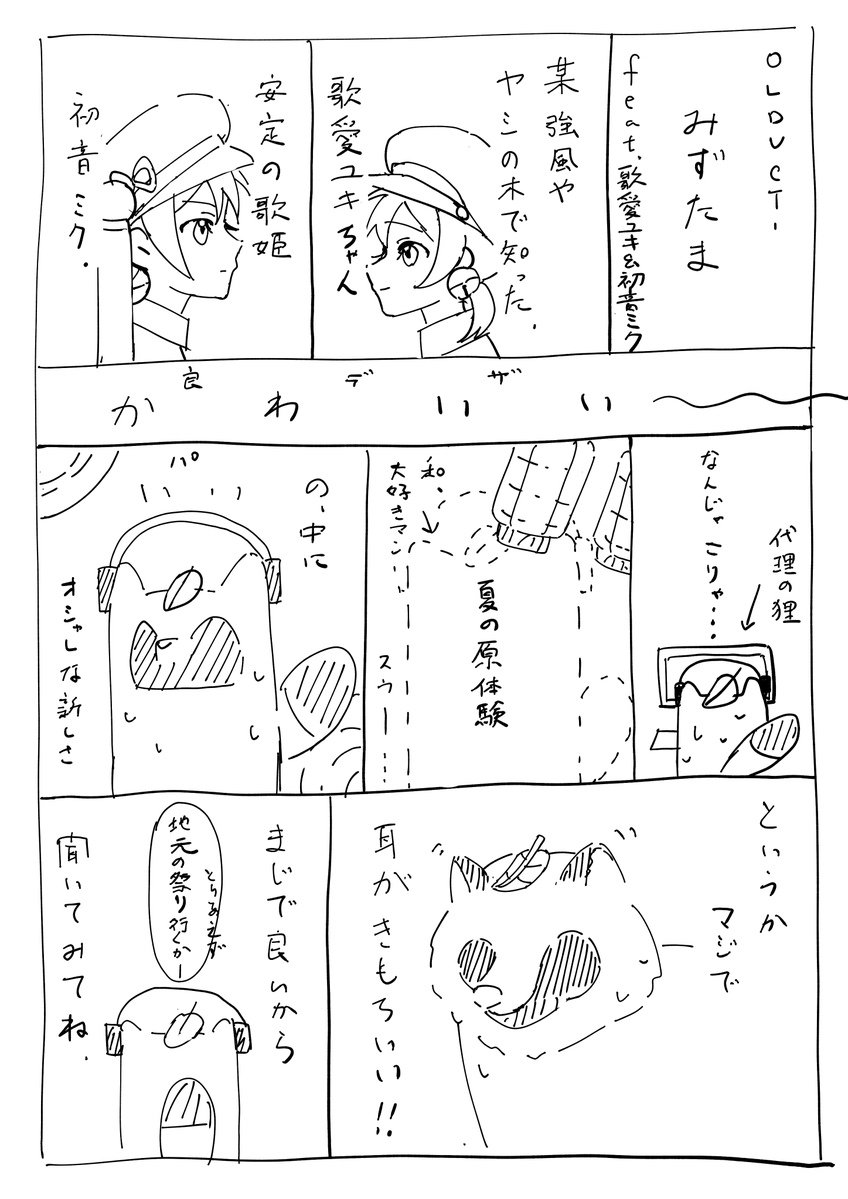 OLDUCT-
みずたま
feat.歌愛ユキ&初音ミク
某強風や
ヤシの木で知った.
歌愛ユキちゃん
安定の歌姫
初音ミク.
かわいい
良デザ
代理の狸
なんじゃこりゃ…
夏の原体験
和、
大好きマン
スゥー……
の、中に
パ
オシャレな新しさ
というか
マジで
耳がきもちいい!!
まじで良いから
とりあえず
地元の祭り行くかー
聞いてみてね.